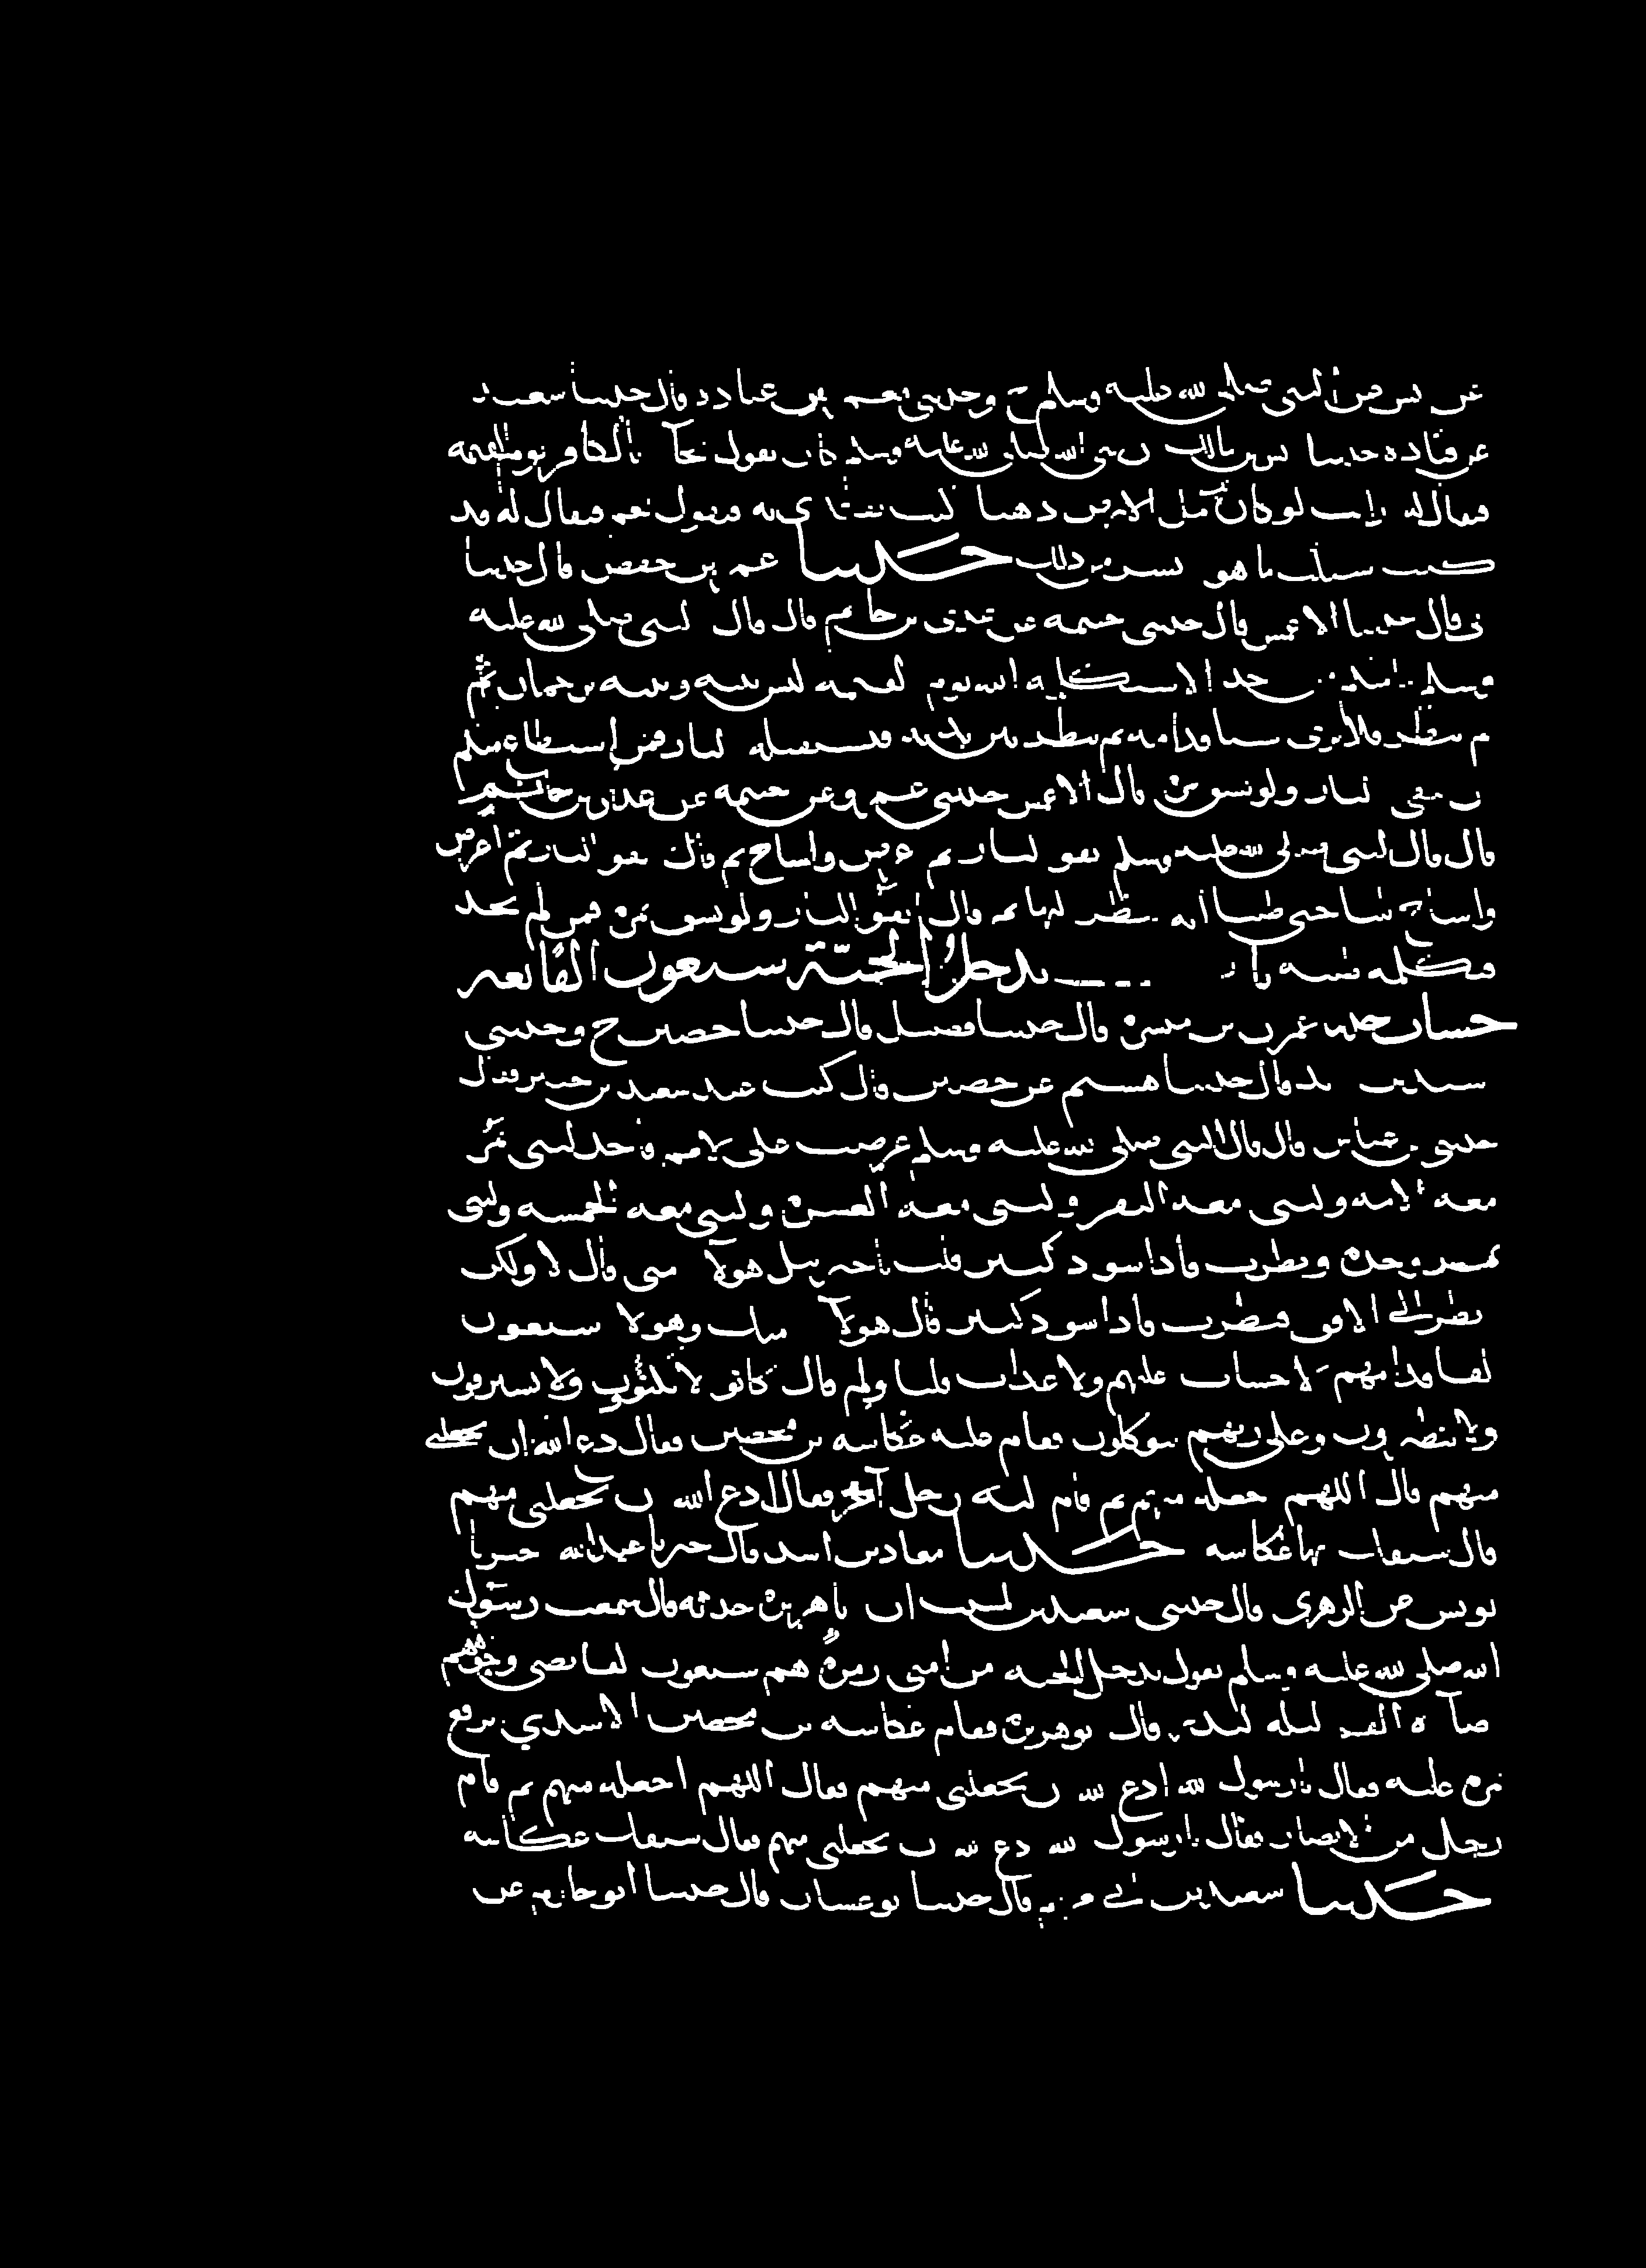 عن انس عن النبي صلى الله عليه وسلم ح وحدثني محمد بن معمر قال حدثنا سعيد
عن قتادة حدثنا انس بن مالك ان نبي الله صلى الله عليه وسلم كان يقول يجاء بالكافر يوم القيمة
فيقال له ارايت لو كان لك مثل الارض ذهبا اكنت تفتدي به فيقول نعم فيقال له قد
كنت سئلت ما هو ايسر من ذلك حدثنا عمر بن حفص قال حدثنا
ابي قال حدثنا الاعمش قال حدثني خيثمة عن عدي بن حاتم قال قال النبي صلى الله عليه
وسلم ما منكم من احد الا سيكلمه الله يوم القيمة ليس بينه وبينه ترجمان ثم
ثم ينظر فلا يرى شيا قدامه ثم ينظر بين يديه فتستقبله النار فمن استطاع منكم
ان يتقي النار ولو بشق تمرة قال الاعمش حدثني عمرو عن خيثمة عن عدي بن حاتم
قال قال النبي صلى الله عليه وسلم اتقوا النار ثم اعرض واشاح ثم قال اتقوا النار ثم اعرض
واشاح ثلثا حتى ظننا انه ينظر اليها ثم قال اتقوا النار ولو بشق تمرة فمن لم يجد
فبكلمة طيبة باب يدخل الجنة سبعون الفا بغير
حساب حدثنا عمران بن ميسرة قال حدثنا ابن فضيل قال حدثنا حصين ح وحدثني
اسيد بن زيد قال حدثنا هشيم عن حصين قال كنت عند سعيد بن جبير فقال
حدثني ابن عباس قال قال النبي صلى الله عليه وسلم عرضت علي الامم فاخذ النبي يمر
معه الامة والنبي معه النفر والنبي معه العشرة والنبي معه الخمسة والنبي
يمر وحده ونظرت فاذا سواد كثير قلت يا جبريل هولا امتي قال لا ولكن
انظر الى الافق فنظرت فاذا سواد كثير قال هولا امتك وهولا سبعون
الفا قدامهم لا حساب عليهم ولا عذاب قلت ولم قال كانوا لا يكتوون ولا يسترقون
ولا يتطيرون وعلى ربهم يتوكلون فقام اليه عكاشة بن محصن فقال ادع الله ان يجعلني
منهم قال اللهم اجعله منهم ثم قام اليه رجل آخر فقال ادع الله ان يجعلني منهم
قال سبقك بها عكاشة حدثنا معاذ بن اسد قال اخبرنا عبد الله اخبرنا
يونس عن الزهري قال حدثني سعيد بن المسيب ان ابا هريرة حدثه قال سمعت رسول
الله صلى الله عليه وسلم يقول يدخل الجنة من امتي زمرة هم سبعون الفا تضي وجوههم
اضاءة القمر ليلة البدر وقال ابو هريرة فقام عكاشة بن محصن الاسدي يرفع
نمرة عليه فقال يا رسول الله ادع الله ان يجعلني منهم فقال اللهم اجعله منهم ثم قام
رجل من الانصار فقال يا رسول الله ادع الله ان يجعلني منهم فقال سبقك عكاشة
حدثنا سعيد بن ابي مريم قال حدثنا ابو غسان قال حدثنا ابو حازم عن